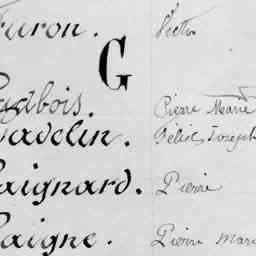 Furon. Victor
G
Gadbois. Pierre Marie
Gadelin. Felix Joseph
Gaignard. Pierre
Gaigne. Pierre Mari